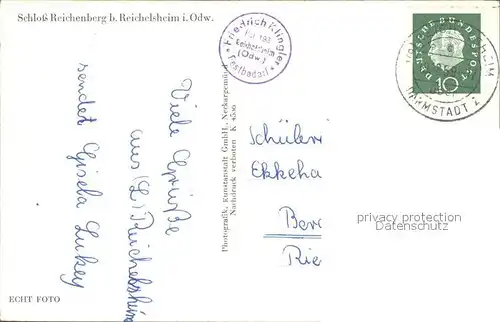 Schloß Reichenberg b. Reichelsheim i. Odw.
Friedrich Klingler
Tel. 198
Reichelsheim
(Odw.)
Festbedarf
DEUTSCHE BUNDESPOST
10
DARMSTADT 2
Viele Grüße
aus (L) Reichelsheim
sendet Gisela
Photografik, Kunstanstalt GmbH., Neckargemünd
Nachdruck verboten K 4530
Schüleri
Ekkeha
Ber
Rie
privacy protection
Datenschutz
ECHT FOTO